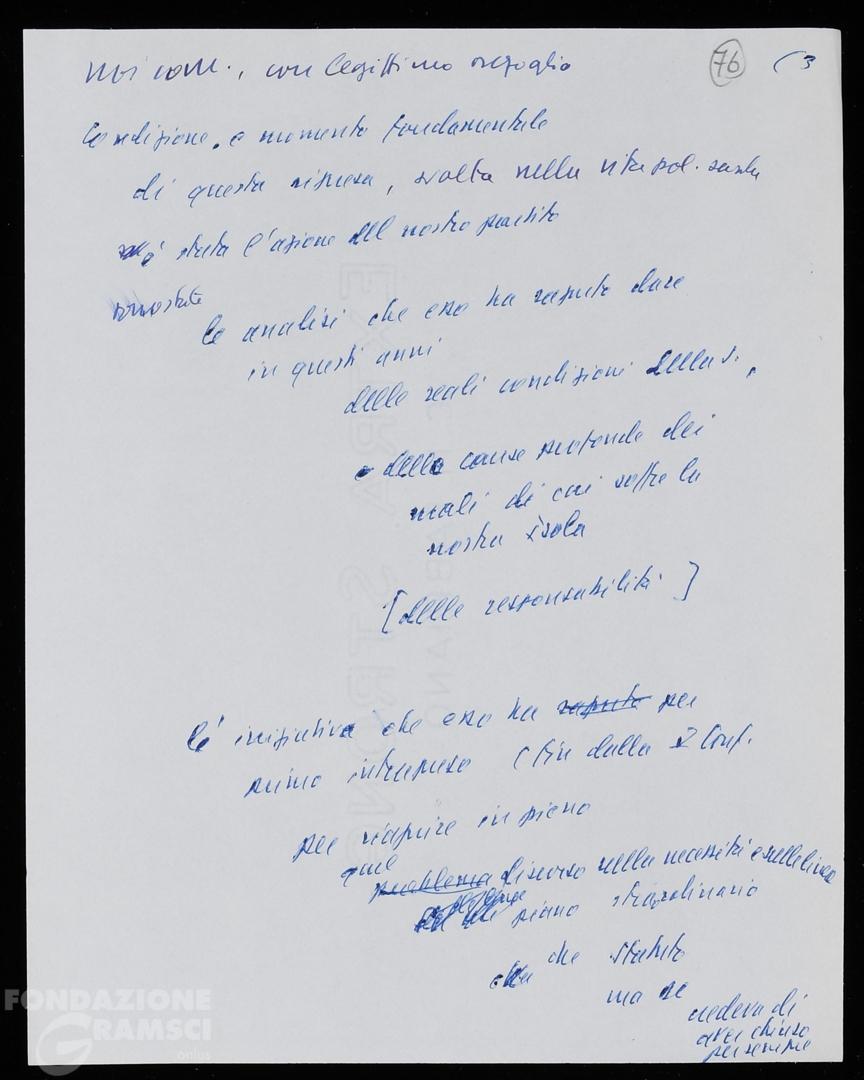 noi com., con legittimo orgoglio
76
(3
Condizione e momento fondamentale
di questa ripresa, svolta nella vita pol. sarda
è stata l'azione del nostro partito
le analisi che esso ha saputo dare
in questi anni
delle reali condizioni della S.,
e delle cause profonde dei
mali di cui soffre la
nostra isola
[delle responsabilità]
l'iniziativa che esso ha saputo per
primo intrapreso (fin dalla Conf.
per riaprire in pieno
quel
problema discorso sulla necessità e sulle linee
piano straordinario
che Statuto
ma se
credeva di
aver chiuso
per sempre
EXTRA STRONG
FABRIANO
FONDAZIONE
GRAMSCI
onlus